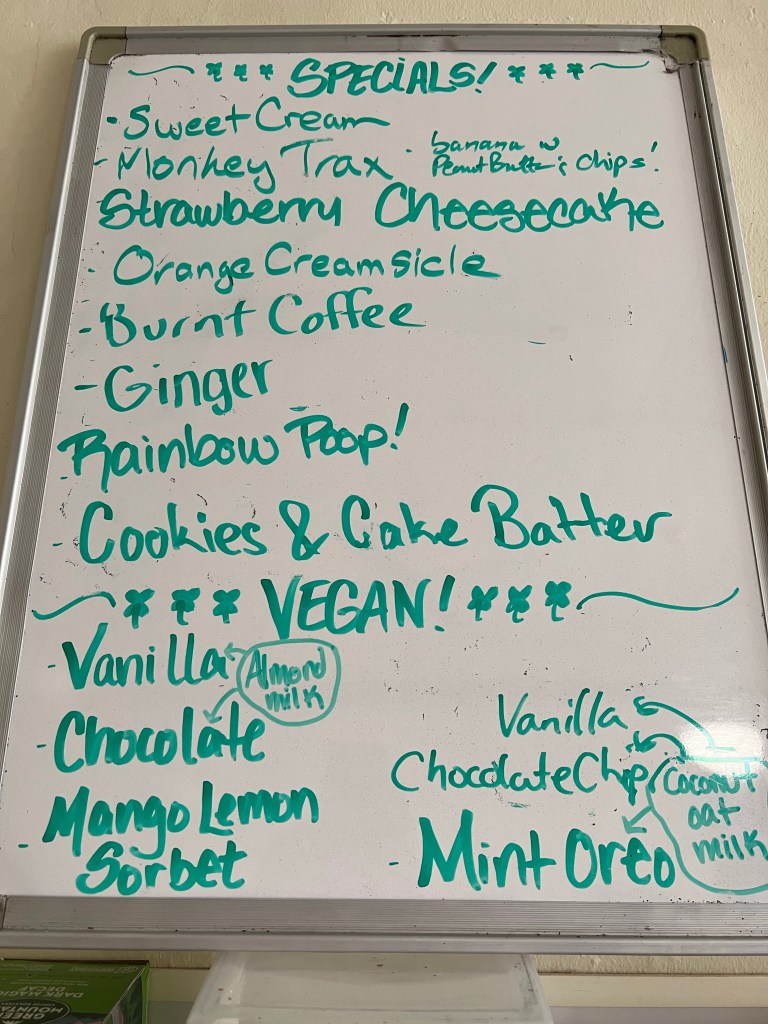 *** SPECIALS! ***
- Sweet Cream
- Monkey Trax - banana w
Peanut Butter & Chips!
Strawberry Cheesecake
- Orange Creamsicle
- Burnt Coffee
- Ginger
- Rainbow Poop!
- Cookies & Cake Batter
*** VEGAN! ***
- Vanilla
Almond
milk
- Chocolate
- Mango Lemon
Sorbet
Vanilla
Chocolate Chip
Coconut
oat
milk
- Mint Oreo
DARK MAGIC
DECAF
GREEN
MOUNTAIN